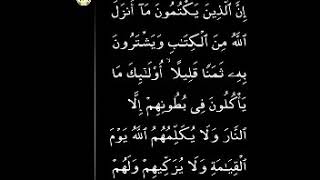 إِنَّ ٱلَّذِينَ يَكۡتُمُونَ مَآ أَنزَلَ
ٱللَّهُ مِنَ ٱلۡكِتَٰبِ وَيَشۡتَرُونَ
بِهِۦ ثَمَنٗا قَلِيلًا أُوْلَٰٓئِكَ مَا
يَأۡكُلُونَ فِي بُطُونِهِمۡ إِلَّا
ٱلنَّارَ وَلَا يُكَلِّمُهُمُ ٱللَّهُ يَوۡمَ
ٱلۡقِيَٰمَةِ وَلَا يُزَكِّيهِمۡ وَلَهُمۡ